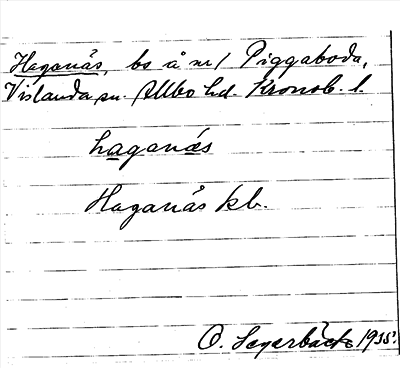 Haganäs, bs å nr 1 Piggaboda,
Vislanda sn. Allbo hd. Kronob. l.
haganäs
Haganäs kb.
O. 1935.